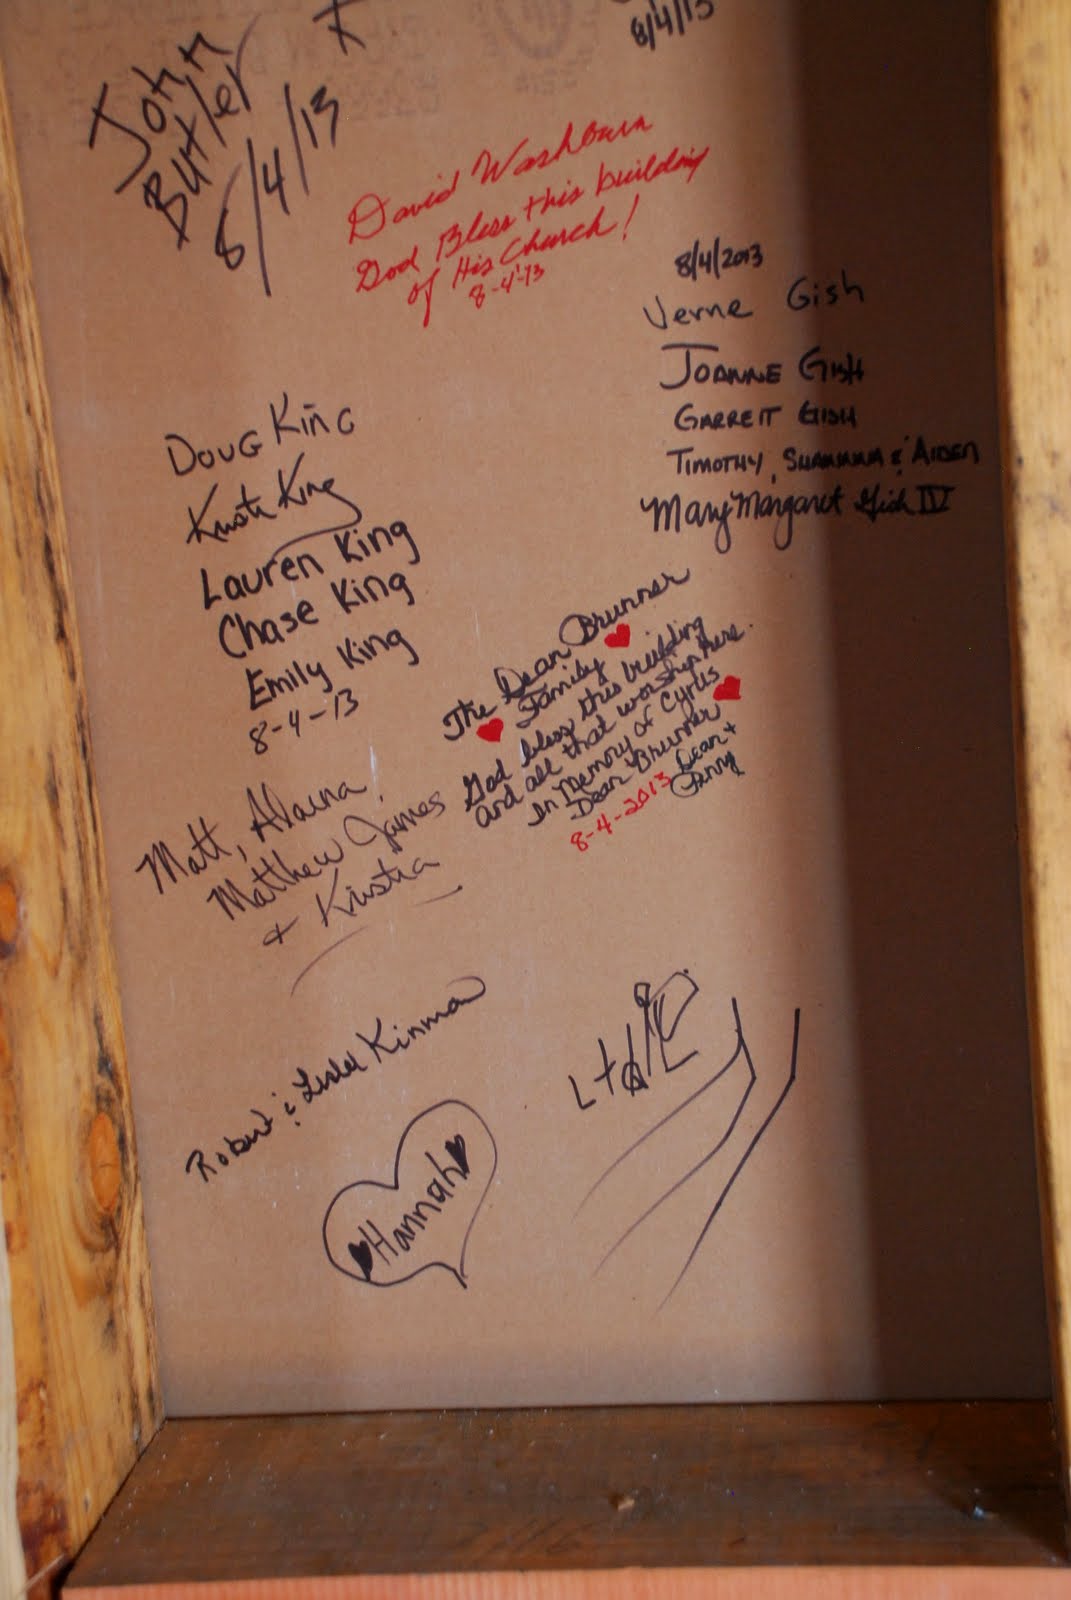 John
Butler
8/4/13
8/4/13
David Washburn
God Bless this building
of His Church!
8-4-13
8/4/2013
Verne Gish
JOANNE GISH
GARRETT GISH
TIMOTHY, SHANNNA & AIDEN
Mary Margaret Gish IV
DOUG KING
Kristi King
Lauren King
Chase King
Emily King
8-4-13
The Dean Brunner
Family
God bless this building
and all that worship here.
In Memory of Cyrus
Dean Brunner
8-4-2013 Dean +
Penny
Matt, Alaina,
Matthew James
+ Kristia
Robert & Kinman
Hannah